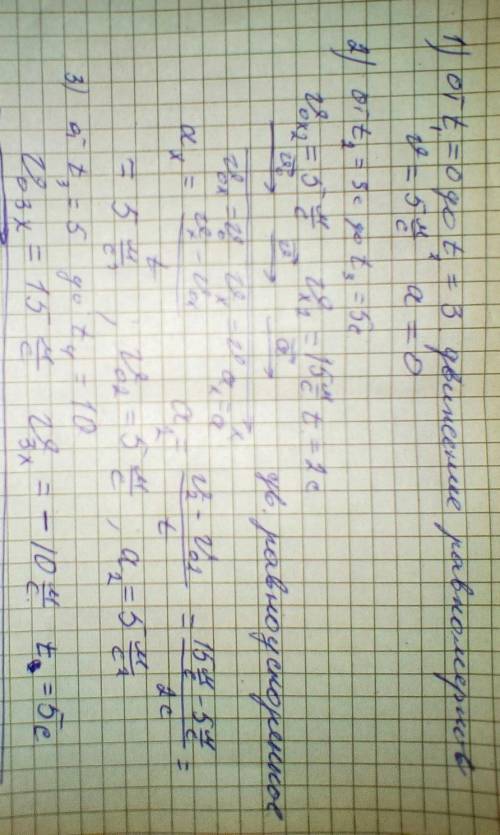 1) от t₁ = 0 до t = 3 движение равномерное
υ = 5 м/с, a = 0
2) от t₂ = 3с до t₃ = 5с
υ₀ₓ₂ = 5 м/с υₓ₂ = 15 м/с t = 2с
υ₀ a дв. равноускоренное
υ₀ₓ = υ₀ υₓ = υ aₓ = a
aₓ = (υₓ - υ₀ₓ)/t a₂ = (υ₂ - υ₀₂)/t = (15 м/с - 5 м/с)/2с =
= 5 м/с², υ₀₂ = 5 м/с, a₂ = 5 м/с²
3) от t₃ = 5 до t₄ = 10
υ₀₃ₓ = 15 м/с υ₃ₓ = - 10 м/с t = 5с